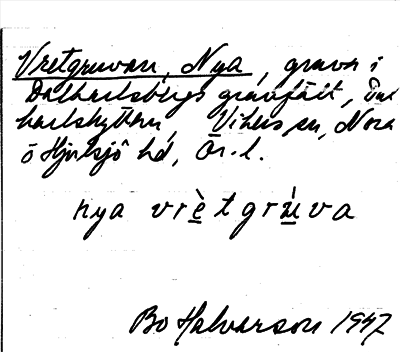 Vretgruvan, Nya, gruva i
Dalkarlsbergs gruvfält, Dal
karlshyttan, Vikers sn, Nora
o Hjulsjö hd, Ör. l.
nya vrètgrùva
Bo Halvarson 1947